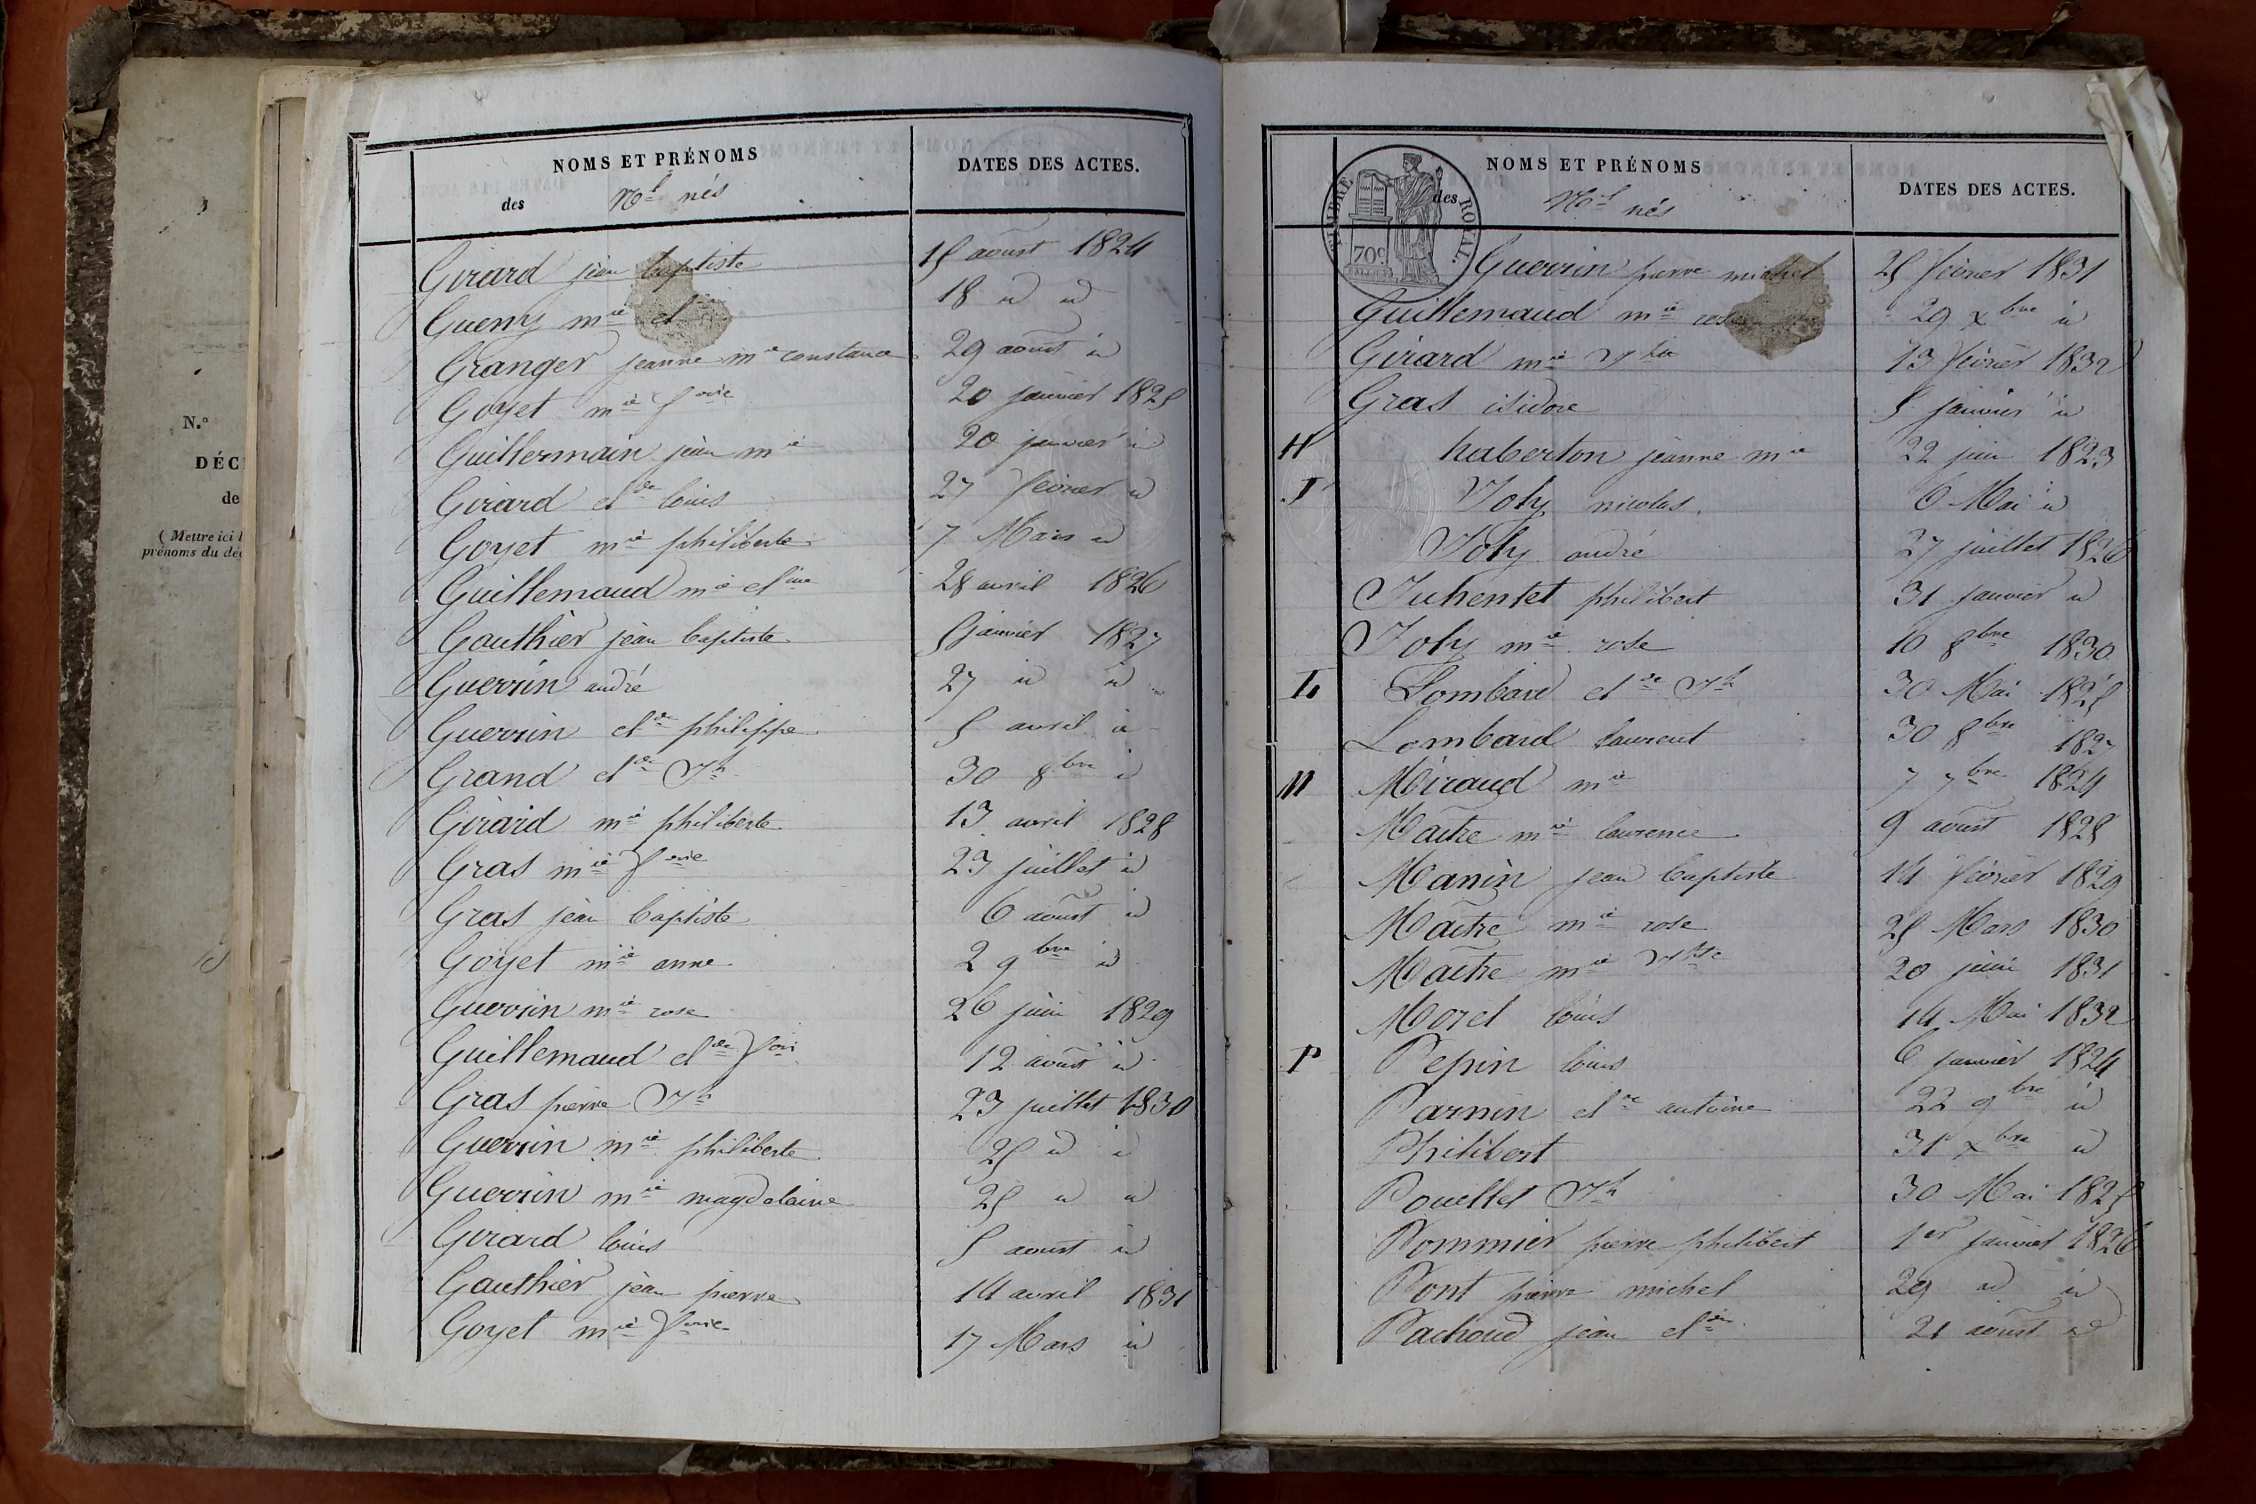 N.°
DÉC
de
(Mettre ici l
prénoms du déc
NOMS ET PRÉNOMS
des
nés
DATES DES ACTES.
Girard jean baptiste 15 aoust 1824
Gueny mie 18 id id
Granger jeanne mie constance 29 aoust id
Goyet mie foise 20 janvier 1825
Guillermain jean mie 20 janvier id
Girard clde louis 27 février id
Goyet mie philiberte 7 Mars id
Guillemaud mie cline 28 avril 1826
Gauthier jean baptiste 5 janvier 1827
Guerrin andré 27 id id
Guerrin clde philippe 5 avril id
Grand clde Jh 30 8bre id
Girard mie philiberte 13 avril 1828
Gras mie foise 23 juillet id
Gras jean baptiste 6 aoust id
Goyet mie anne 2 9bre id
Guerrin mie rose 26 juin 1829
Guillemaud clde fois 12 aoust id
Gras pierre Jh 23 juillet 1830
Guerrin mie philiberte 25 id id
Guerrin mie magdelaine 25 id id
Girard louis 5 aoust id
Gauthier jean pierre 14 avril 1831
Goyet mie foise 17 Mars id
TIMBRE ROYAL.
70c
NOMS ET PRÉNOMS
des
nés
DATES DES ACTES.
Guerrin pierre michel 25 février 1831
Guillemaud mie rose 29 xbre id
Girard mie 13 février 1832
Gras isidore 5 janvier id
H haberton jeanne mie 22 juin 1823
J Joly nicolas 6 Mai id
Joly andré 27 juillet 1826
Juhentet philibert 31 janvier id
Joly mie rose 10 8bre 1830
L Lombard clde Jh 30 Mai 1825
Lombard laurent 30 8bre 1827
M Miraud mie 7 7bre 1824
Maitre mie laurence 9 aoust 1825
Manin jean baptiste 14 février 1829
Maitre mie rose 25 Mars 1830
Maitre mie 20 juin 1831
Morel louis 14 Mai 1832
P Pepin louis 6 janvier 1824
Parnin clde antoine 22 9bre id
Philibert 31 xbre id
Pouillet Jh 30 Mai 1825
Pommier pierre philibert 1er janvier 1826
Pont pierre michel 29 id id
Pachoud jean clde 21 aoust id